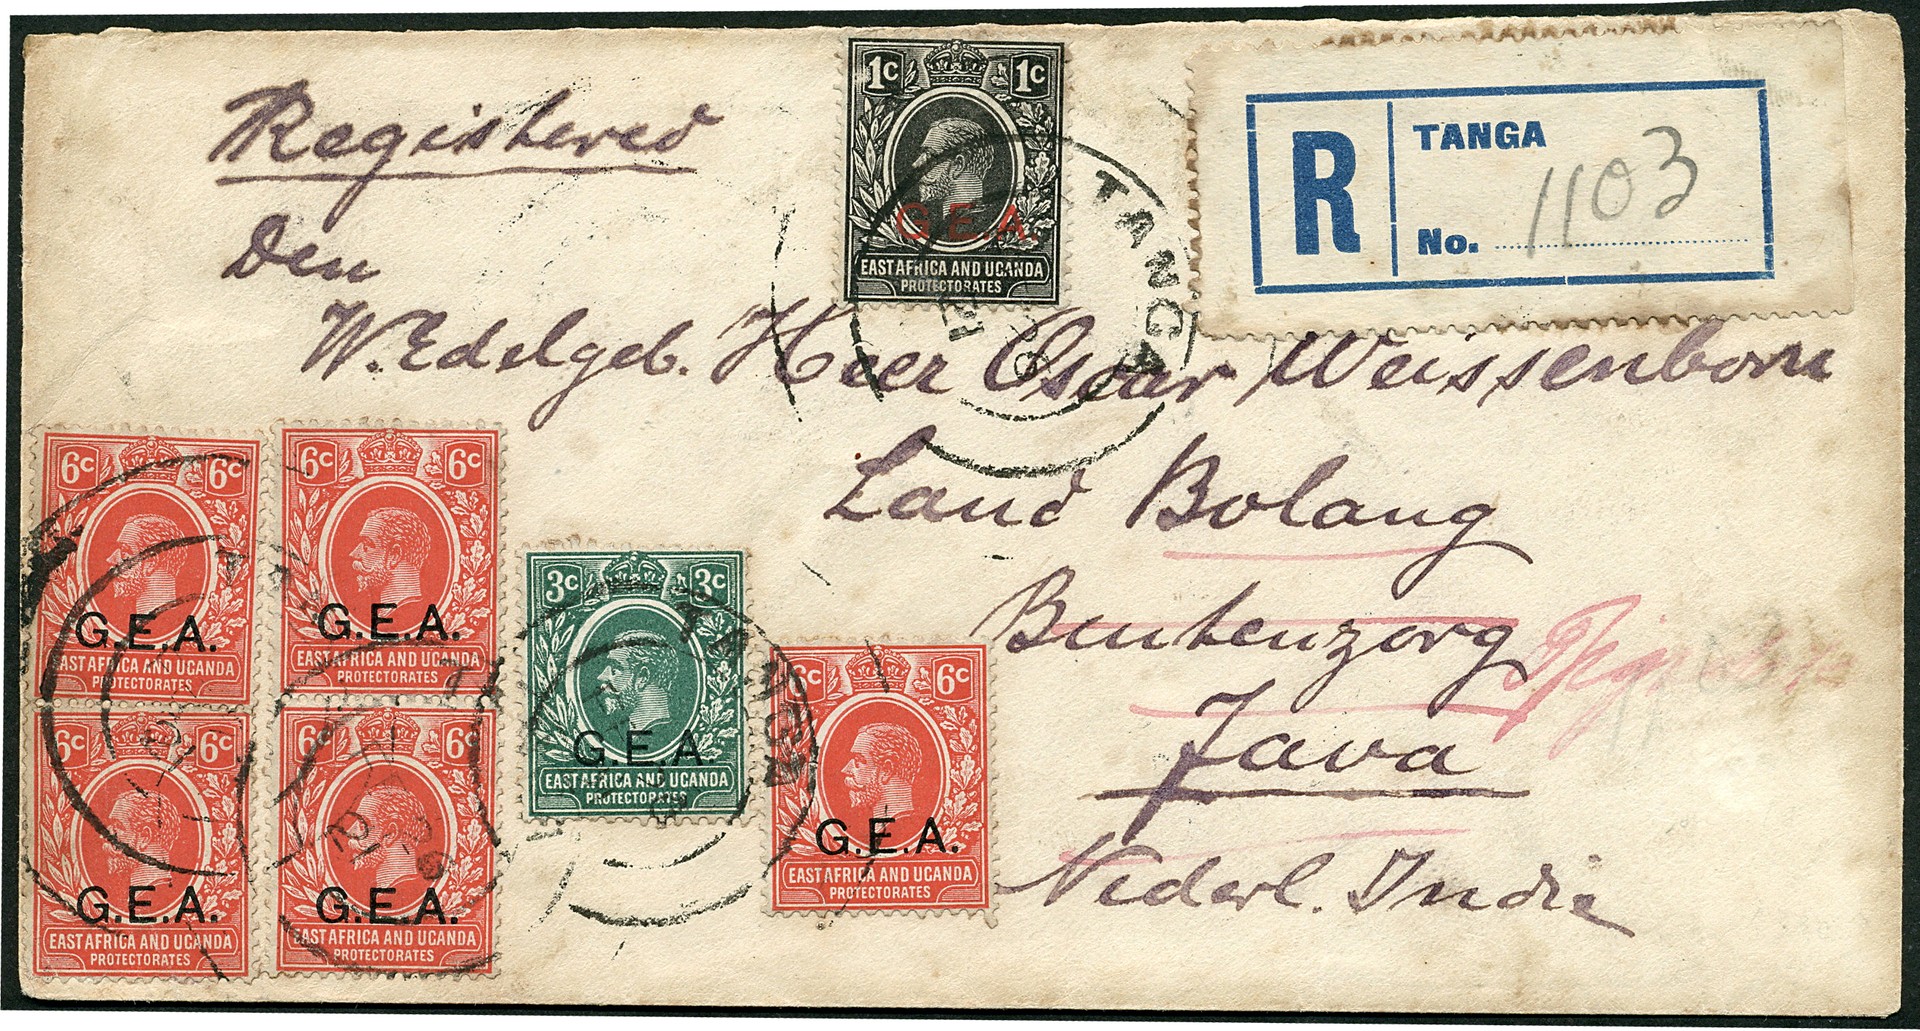 Registered
1c 1c
G.E.A.
EAST AFRICA AND UGANDA
PROTECTORATES
TANGA
R
TANGA
No. 1103
Den
W.Edelgeb. Heer Oscar Weissenborn
Land Bolang
Buitenzorg
Java
Nederl. Indie
6c 6c
G.E.A.
EAST AFRICA AND UGANDA
PROTECTORATES
6c 6c
G.E.A.
EAST AFRICA AND UGANDA
PROTECTORATES
6c 6c
G.E.A.
EAST AFRICA AND UGANDA
PROTECTORATES
6c 6c
G.E.A.
EAST AFRICA AND UGANDA
PROTECTORATES
3c 3c
G.E.A.
EAST AFRICA AND UGANDA
PROTECTORATES
TANGA
6c 6c
G.E.A.
EAST AFRICA AND UGANDA
PROTECTORATES